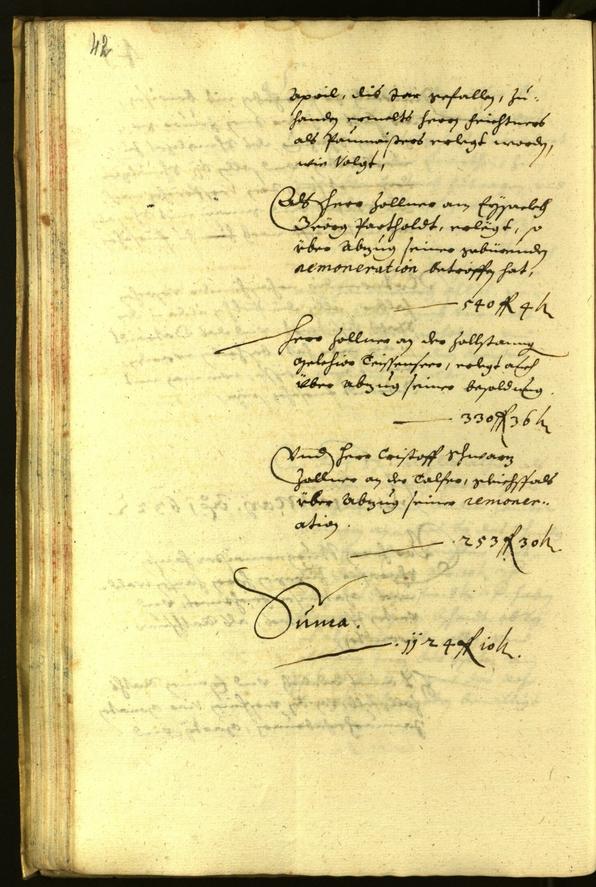 42
April, dis Jar gefallen, zu=
handen ermelts herrn Feichtners
als Paumaisters erlegt worden,
wie volgt,
Als herr Zollner am Eyssackh
Georg Partholdt, erlegt, so
über Abzug seiner gebürenden
remoneration betroffen hat,
540 f 4 k
Herr Zollner an der Zollstang
Melchior Teissenseer, erlegt auch
über Abzug seiner besoldung
330 f 36 k
Und herr Cristoff Schwarz
Zollner an der Talfer, gleichsfals
über Abzug seiner remoner=
ation.
253 f 30 k
Suma.
1124 f 10 k.